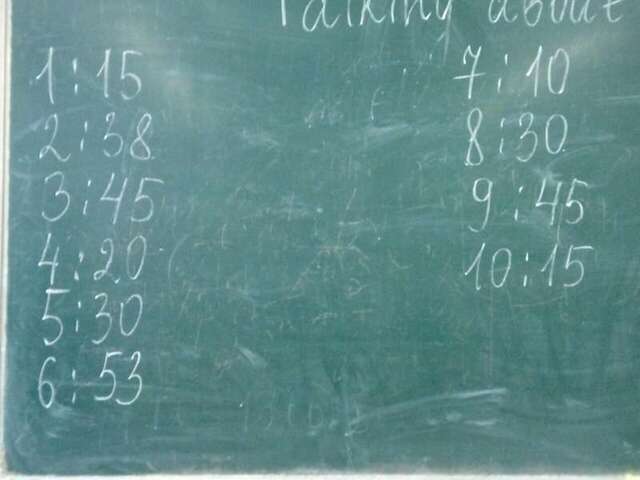 Talking about
1:15
2:38
3:45
4:20
5:30
6:53
7:10
8:30
9:45
10:15